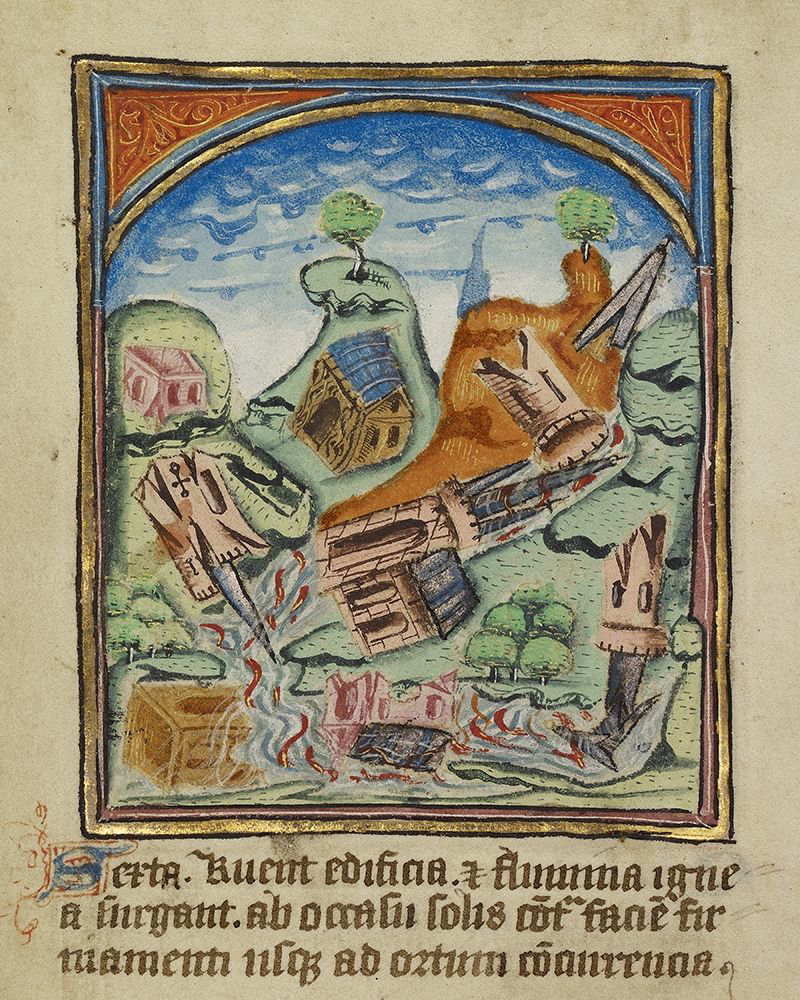 Sexta. Ruent edificia. ⁊ flumina igne
a surgant. ab occasu solis cōt᷑ faciē fir
mamenti usqꝫ ad ortum cōcurrencia.